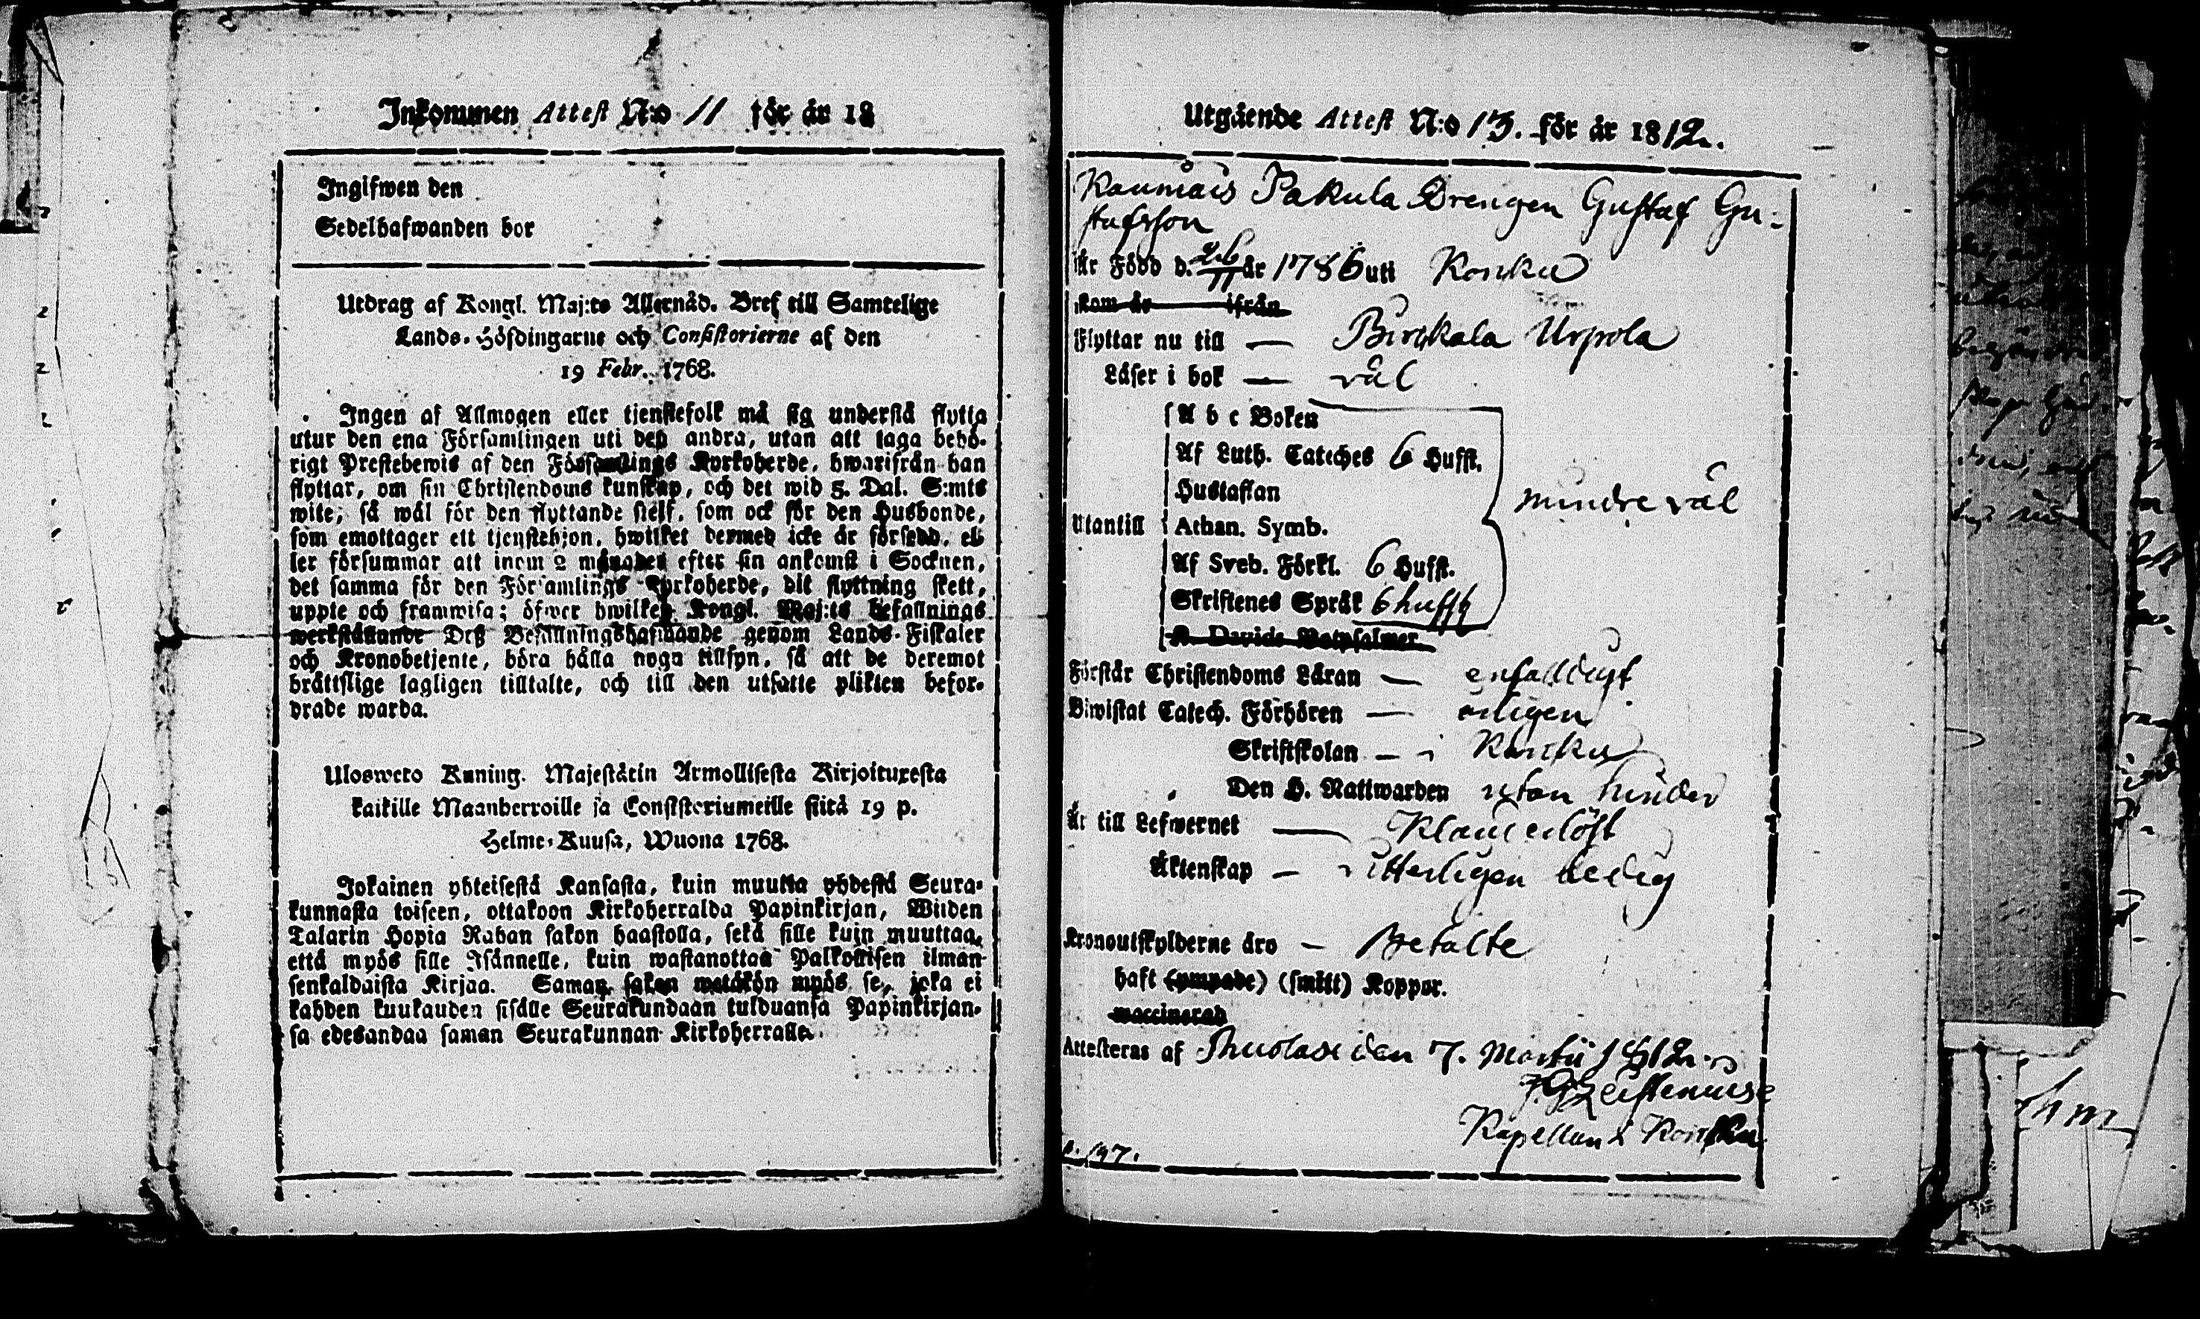 Inkommen Attest N:o 11 för år 18
Ingifwen den
Sedelhafwanden bor
Utdrag af Kongl. Maj:ts Allernåd. Bref till Samtelige
Lands-Höfdingarne och Consistorierne af den
19 Febr. 1768.
Ingen af Allmogen eller tjenstefolk må sig understå flytta
utur den ena Församlingen uti den andra, utan att taga behö-
rigt Prestebewis af den Församlings Kyrkoherde, hwarifrån han
flyttar, om sin Christendoms kunskap, och det wid 5. Dal. S:mts
wite, så wäl för den flyttande sielf, som ock för den Husbonde,
som emottager ett tjenstehjon, hwilket dermed icke är försedd, el-
ler försummar att inom 2 månader efter sin ankomst i Socknen,
det samma för den Församlings Kyrkoherde, dit flyttning skett,
uppte och framwisa; öfwer hwilken Kongl. Maj:ts befallnings
werkställande Deß Befallningshafwande genom Lands-Fiskaler
och Kronobetjente, böra hålla noga tillsyn, så att de deremot
bråttslige lagligen tilltalte, och till den utsatte plikten befor-
drade warda.
Ulosweto Kuning. Majestätin Armollisesta Kirjoituxesta
kaikille Maanherroille ja Consistoriumeille siitä 19 p.
Helme-Kuusa, Wuona 1768.
Jokainen yhteisestä Kansasta, kuin muutta yhdestä Seura-
kunnasta toiseen, ottakoon Kirkoherralda Papinkirjan, Wiiden
Talarin Hopia Rahan sakon haastolla, sekä sille kuin muuttaa,
että myös sille Isännelle, kuin wastanottaa Palkollisen ilman
senkaldaista Kirjaa. Saman sakon wetäkön myös se, joka ei
kahden kuukauden sisälle Seurakundaan tulduansa Papinkirjan-
sa edesandaa saman Seurakunnan Kirkoherralle.
Utgående Attest N:o 13. för år 1812.
Pakula Drengen Gustaf Gu-
stafsson
är Född d. 26/11 år 1786 uti Konku
kom år ifrån
Flyttar nu till — Birckala Urpola
Läser i bok — väl
A b c Boken
Af Luth. Cateches 6 Hufst.
Hustaflan
mindre väl
Utantill Athan. Symb.
Af Sveb. Förkl. 6 Hufst.
Skriftenes Språk 6 hufst
K. Davids Botpsalmer
Förstår Christendoms Läran — enfalldigt
Biwistat Catech. Förhören — årligen
Skriftskolan — i
Den H. Nattwarden utan hinder
Är till Lefwernet —
Äktenskap — witterligen ledig
Kronoutskylderne äro — Betalte
haft (ympade) (smitt) Koppor.
vaccinerad
Attesteras af den 7. Martii 1812.
Kapellan i
p. 197.